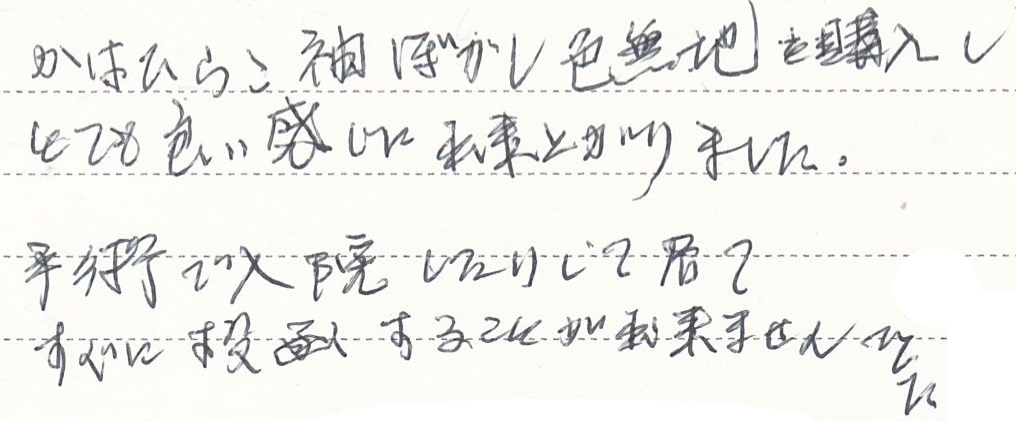 かはひらこ 袖ぼかし色無地を購入し
とても良い感じに出来上がりました。
手術で入院したりして居て
すぐに投函することが出来ませんでし
た